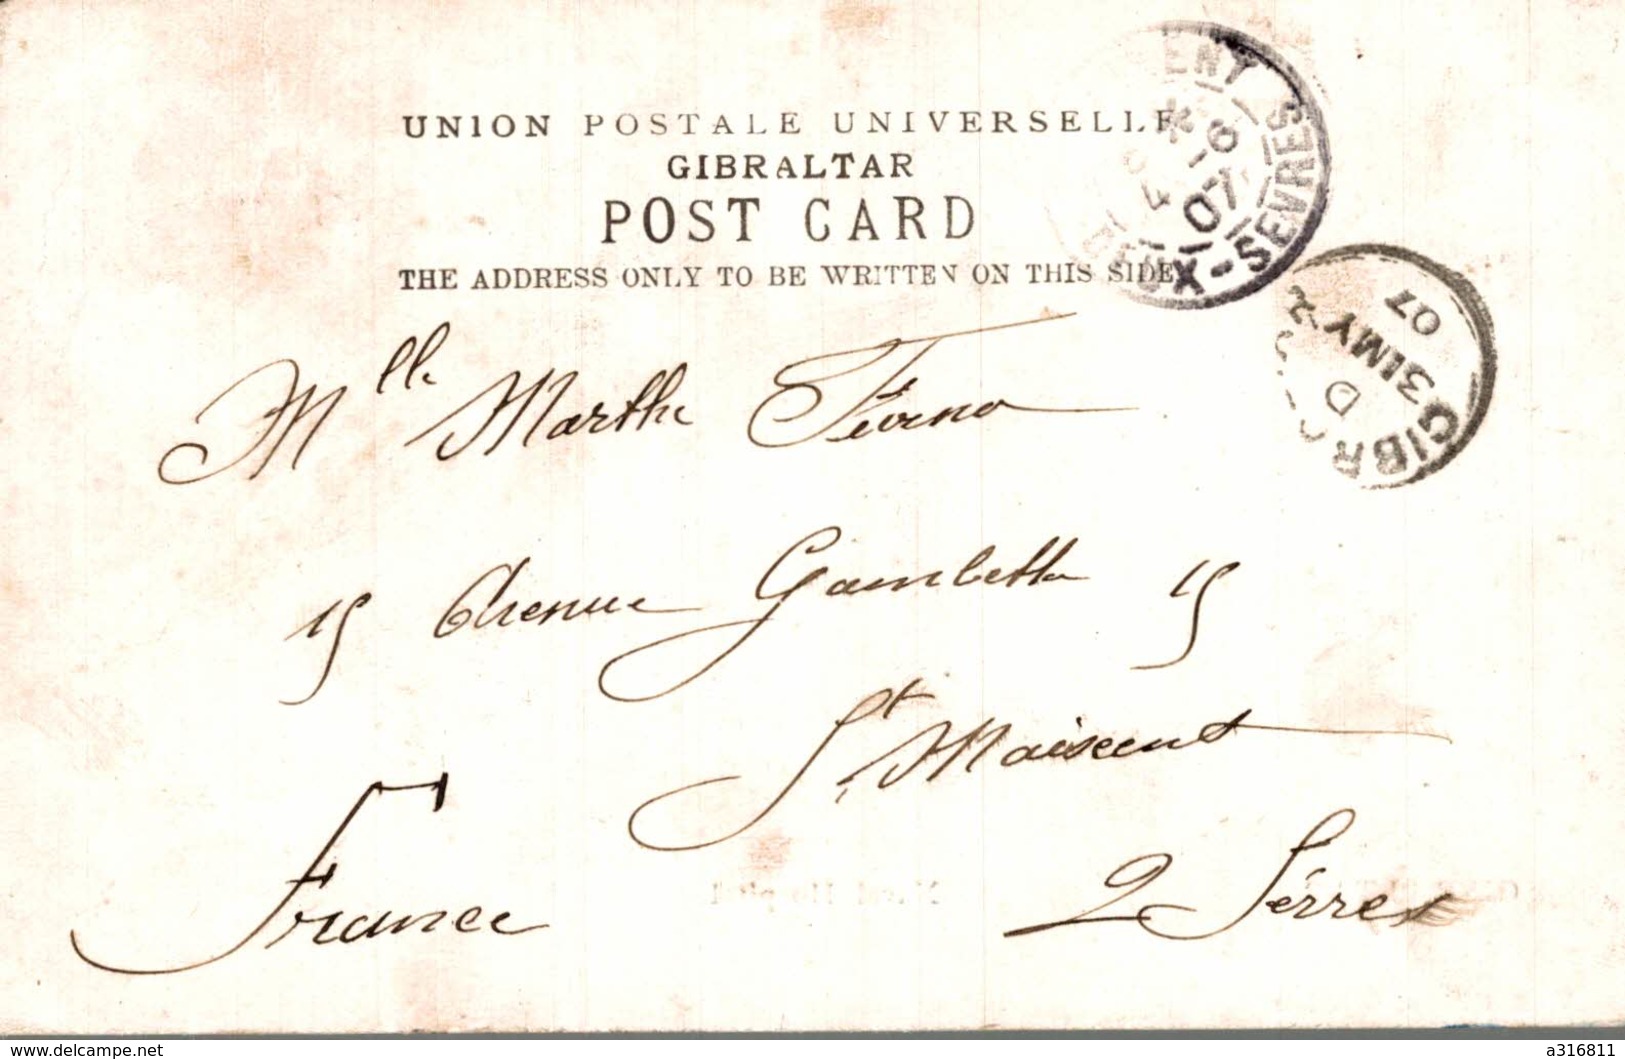 UNION POSTALE UNIVERSELLE
GIBRALTAR
POST CARD
THE ADDRESS ONLY TO BE WRITTEN ON THIS SIDE
ENT
X-SEVRES
4
6
07
GIBR
D
31MY
07
Mlle Marthe
15 Avenue Gambetta 15
St Maixent
2 Sèvres
France
Naval Hospital
www.delcampe.net
a316811